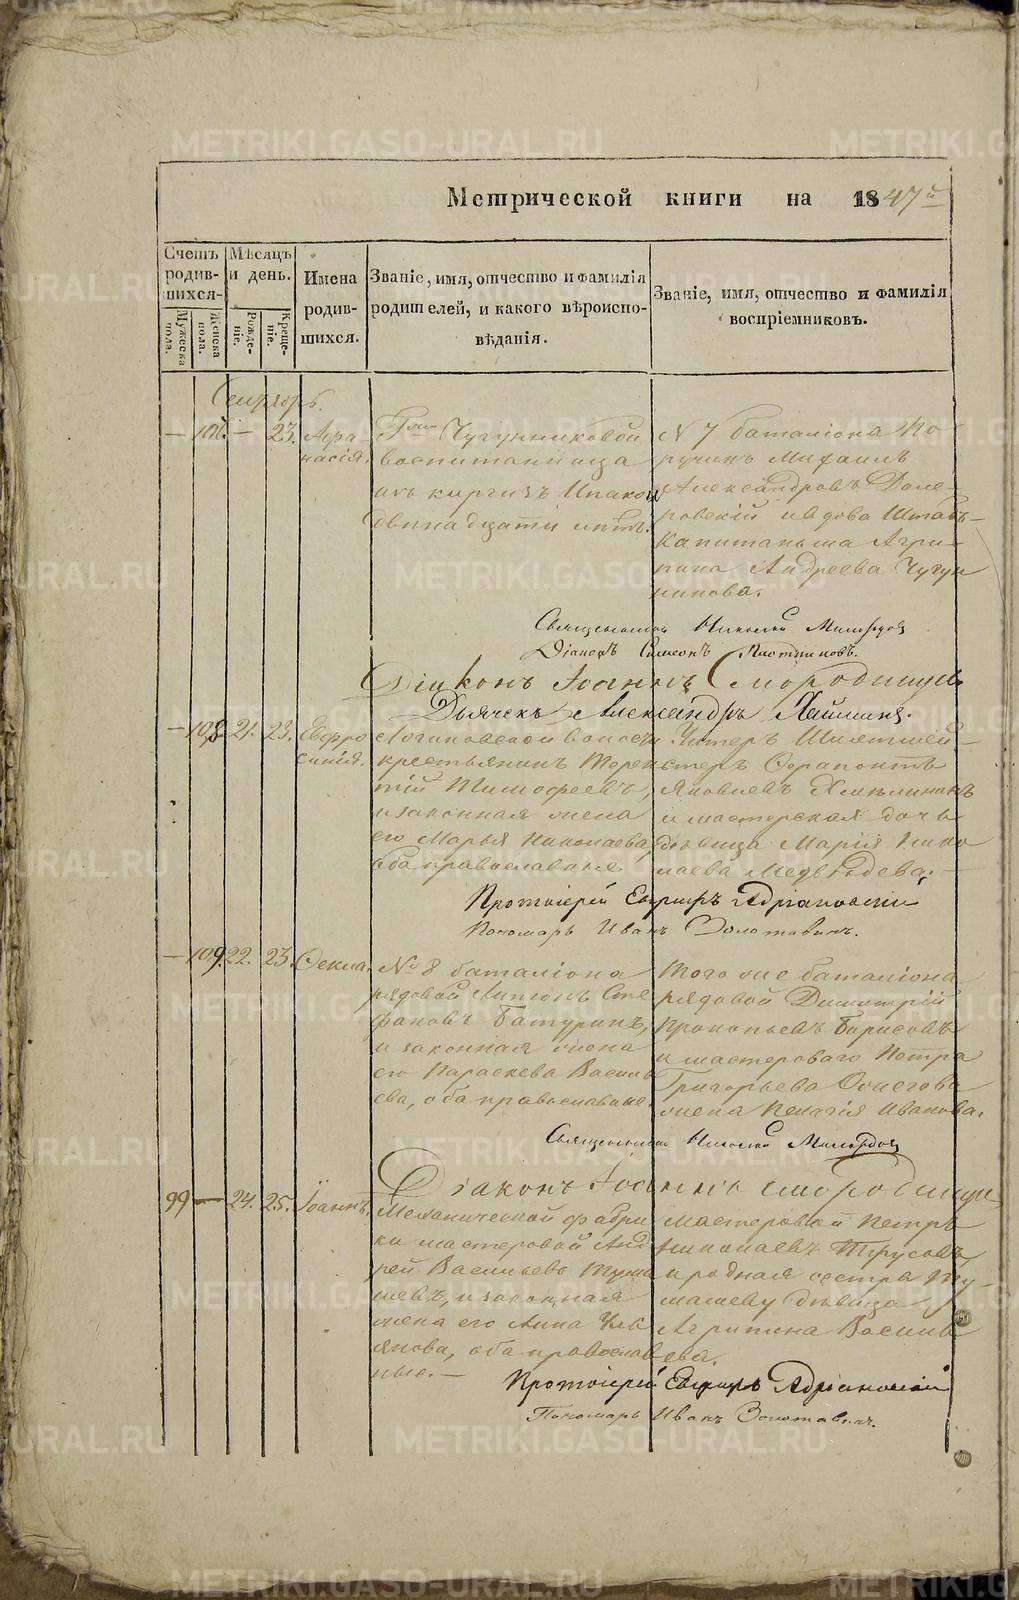 Метрической книги на 1847й
Счетъ родив-шихся.
Мужеска пола.
Женска пола.
Мѣсяцъ и день.
Рожде-нiе.
Креще-нiе.
Имена родив-шихся.
Званiе, имя, отчество и фамилiя родителей, и какого вѣроиспо-вѣданiя.
Званiе, имя, отчество и фамилiя воспрiемниковъ.
Сентябрь.
— 107. — 23.
Афа-
насiя.
Чугунниковой
воспитанница
изъ киргизъ
двенадцати лѣтъ.
N 7 баталiона По-
ручикъ Михаилъ
Александровъ
и вдова Штабъ-
Капитанша Агри-
пина Андреева Чугун
никова.
Священникъ Николай
Дiаконъ Симеонъ
Дiаконъ Iоаннъ Смородинцевъ
Дьячекъ Александръ
— 108. 21. 23.
Евфро
синiя.
Логиновской волости
крестьянинъ Терен
тiй Тимофеевъ,
и законная жена
его Марья Николаева,
оба православные.
Яковлевъ
и мастерская дочь
дѣвица Марiя Нико
лаева Медвѣдева.
Протоiерей
Пономарь Иванъ Золотавинъ.
— 109. 22. 23.
Өекла.
№ 8 баталiона
рядовой Антонъ Сте
фановъ Батуринъ,
и законная жена
его Параскева Василь
ева, оба православные.
того же баталiона
рядовой Димитрiй
Прокопьевъ Борисовъ
и мастероваго Петра
Григорьева Ожегова
жена Пелагiя Иванова.
Священникъ Николай
Дiаконъ Iоаннъ Смородинцевъ
99 — 24. 25.
Iоаннъ.
Механической фабри
ки мастеровой Анд
рей Васильевъ Тума
шевъ, и законная
жена его Анна Уль
янова, оба православ
ные. —
мастеровой Петръ
Николаевъ Трусовъ
и родная сестра Ту-
машеву дѣвица
Агрипина Василь
ева.
Протоiерей
Пономарь Иванъ Золотавинъ.
METRIKI.GASO-URAL.RU